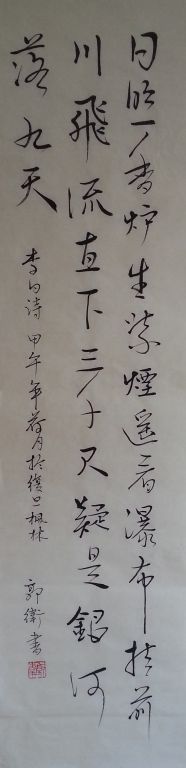 日照香炉生紫煙遥看瀑布挂前
川飛流直下三千尺疑是銀河
落九天
李白诗 甲午年荷月於枫林
郭衛書